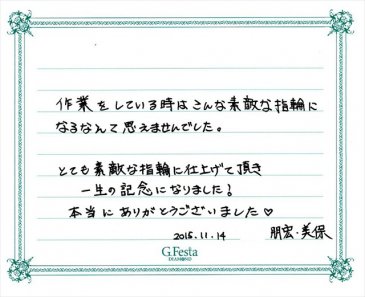 作業をしている時はこんな素敵な指輪に
なるなんて思えませんでした。
とても素敵な指輪に仕上げて頂き
一生の記念になりました!
本当にありがとうございました♡
2015.11.14 朋宏・美保
G.Festa
DIAMOND